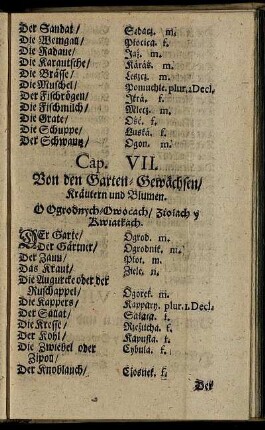 Der Sandat/ Sedacz. m.
Die Weingall/ Płocica. f.
Die Radaue/ Jaź. m.
Die Karautsche/ Karáś. m.
Die Brässe/ Leszcz. m.
Die Muschel/ Pomuchle. plur. 1 Decl.
Der Fischrögen/ Jkrá. f.
Die Fischmilch/ Mlecz. m.
Die Grate/ Ość. f.
Die Schuppe/ Łuská. f.
Der Schwantz/ Ogon. m.
Cap. VII.
Von den Garten-Gewächsen/
Kräutern und Blumen.
O Ogrodnych-Owocach/ Ziołach y
Kwiatkach.
DEr Garte/ Ogrod. m.
Der Gärtner/ Ogrodnik. m.
Der Zaun/ Płot. m.
Das Kraut/ Ziele. n.
Die Augurcke oder der
Ruschappel/ Ogorek. m.
Die Kappers/ Kappary. plur. 1. Decl.
Der Sallat/ Sałata. f.
Die Kresse/ Rzeżucha. f.
Der Kohl/ Kapusta. f.
Die Zwiebel oder Cybula. f.
Zipoll/
Der Knoblauch/ Czosnek. f.
Der